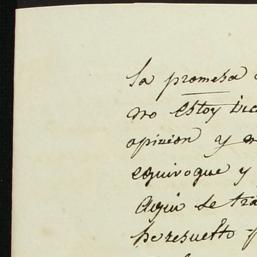 la promesa
no estoy
opinion y
equivoque y
Aqui se tra
he resuelto